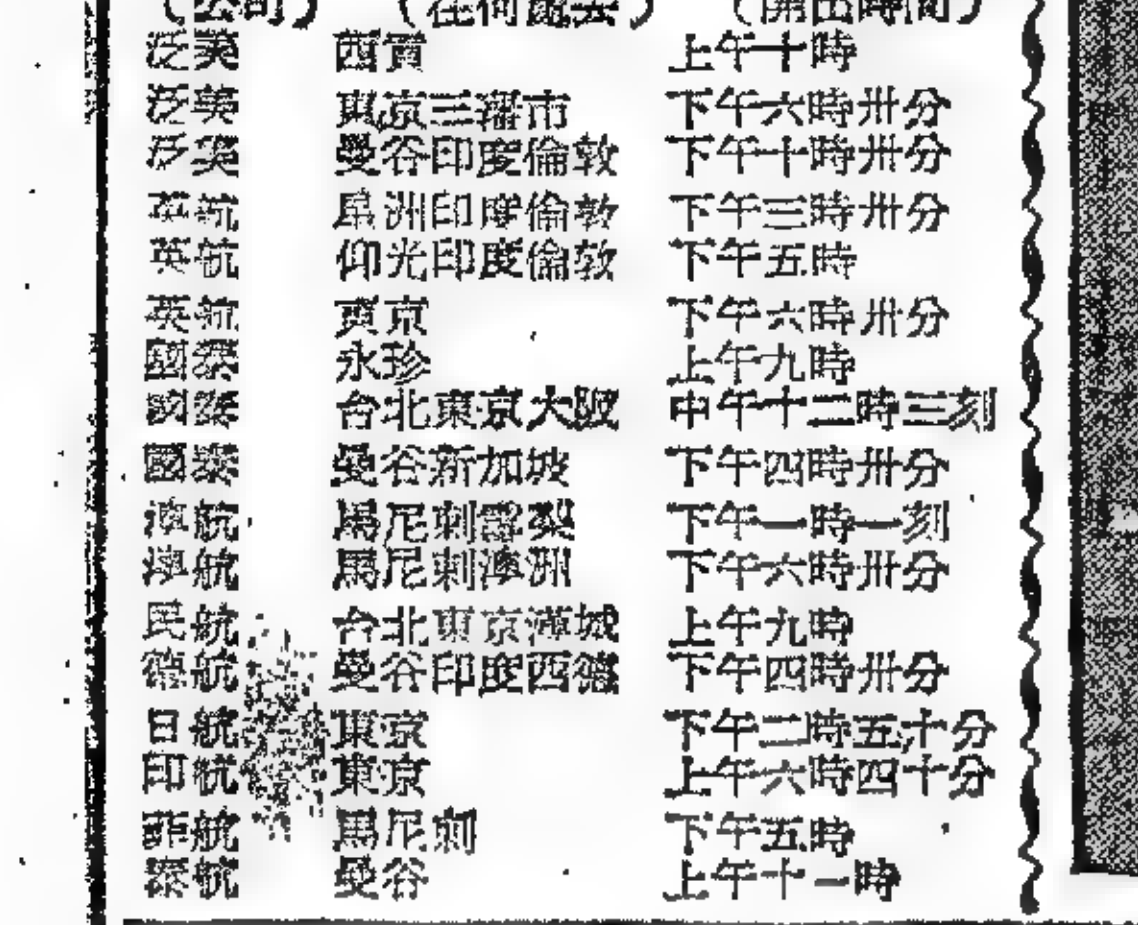 （公司）　（往何處去）　（開出時間）
泛美　西貢　上午十時
泛美　東京三藩市　下午六時卅分
泛美　曼谷印度倫敦　下午十時卅分
英航　星洲印度倫敦　下午三時卅分
英航　仰光印度倫敦　下午五時
英航　東京　下午六時卅分
國泰　永珍　上午九時
國泰　台北東京大阪　中午十二時三刻
國泰　曼谷新加坡　下午四時卅分
澳航　馬尼剌雪梨　下午一時一刻
澳航　馬尼剌澳洲　下午六時卅分
民航　台北東京漢城　上午九時
德航　曼谷印度西德　下午四時卅分
日航　東京　下午二時五十分
印航　東京　上午六時四十分
菲航　馬尼剌　下午五時
泰航　曼谷　上午十一時